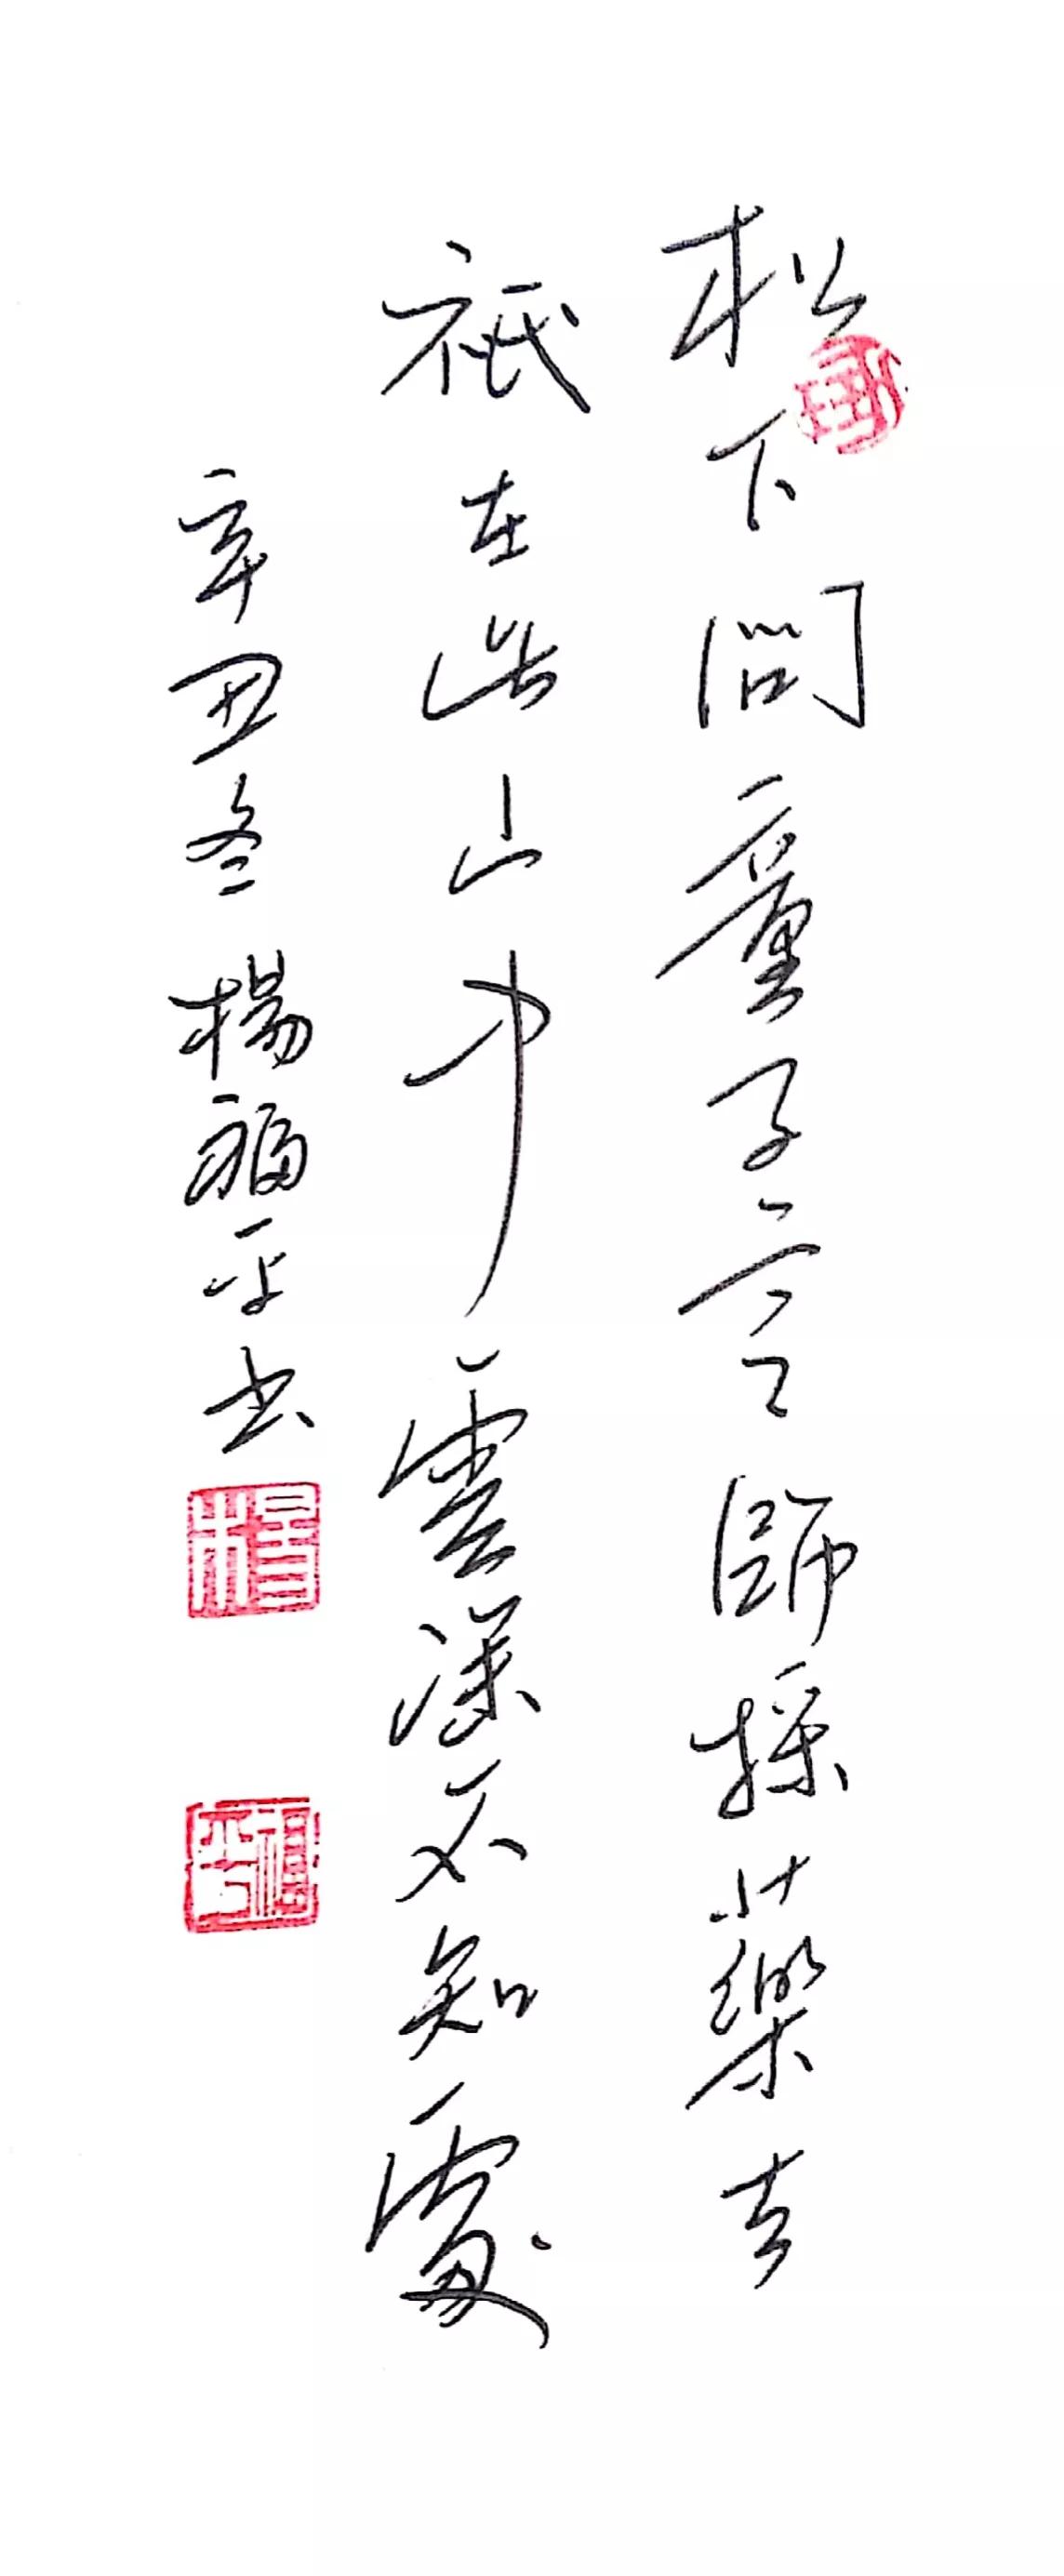 松下問童子言師採藥去
祇在此山中雲深不知處
辛丑冬楊福平書
楊
福平